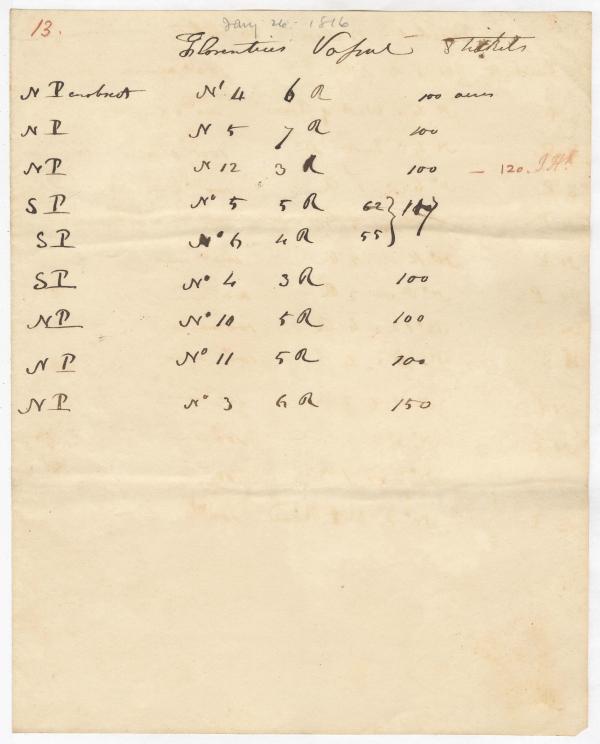 13.
Jany 26 - 1816
Florentius Vassal 8 tickets
N P No 4 6 R 100 acres
N P N 5 7 R 100
N P N 12 3 R 100 - 120.
S P No 5 5 R 62 } 117
S P No 6 4 R 55 }
S P No 4 3 R 100
N P No 10 5 R 100
N P No 11 5 R 100
N P No 3 6 R 150